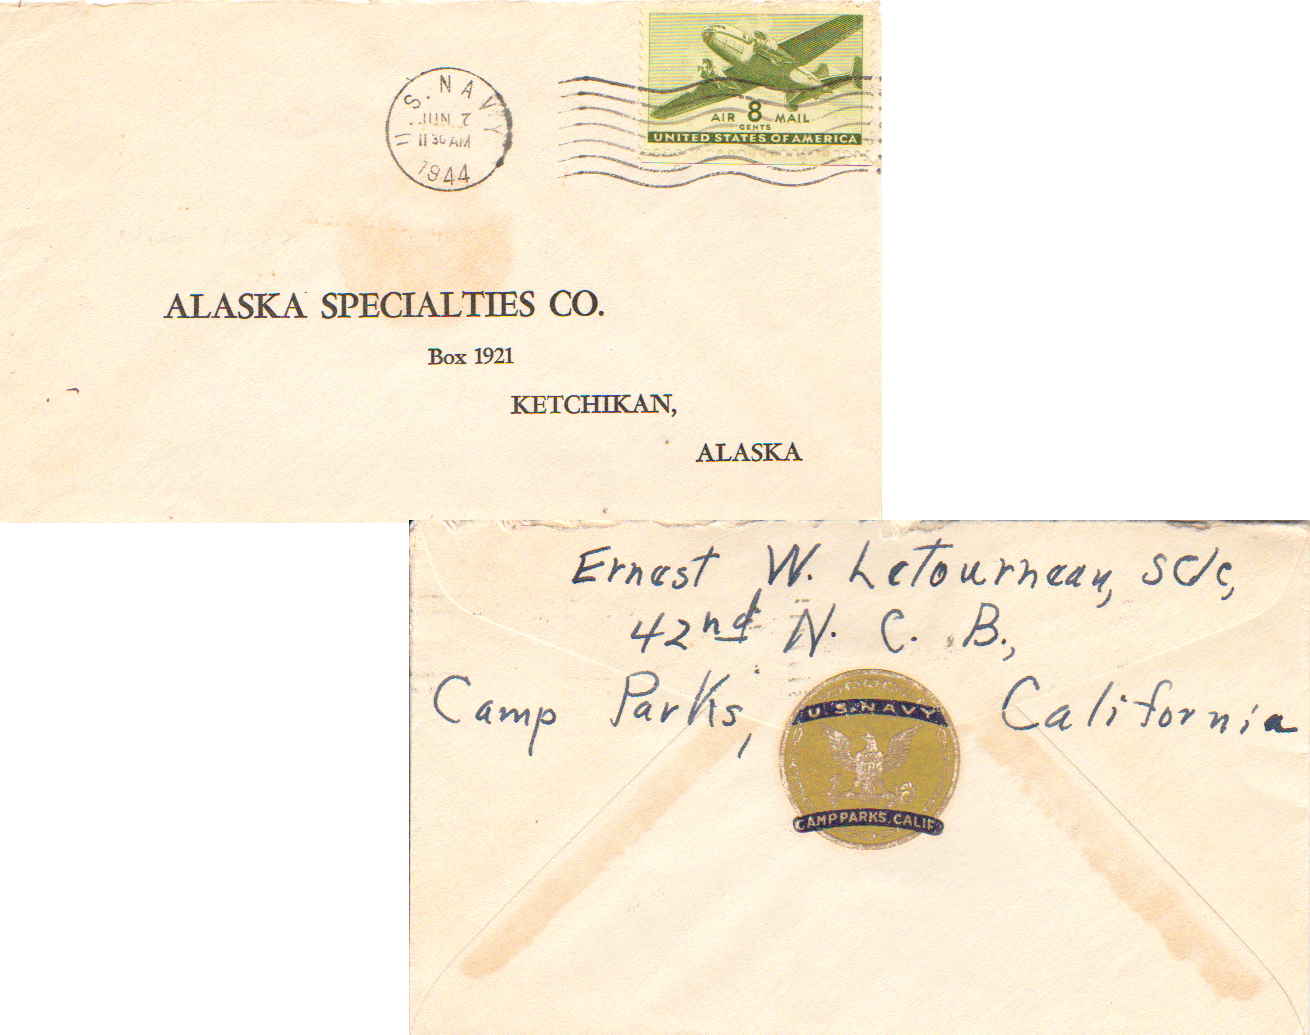 U.S. NAVY
JUN 7
11 30 AM
1944
AIR 8 MAIL
CENTS
UNITED STATES OF AMERICA
ALASKA SPECIALTIES CO.
Box 1921
KETCHIKAN,
ALASKA
Ernest W. LeTourneau, SC/c,
42nd N. C. B.,
Camp Parks, California
U.S. NAVY
CAMP PARKS, CALIF.